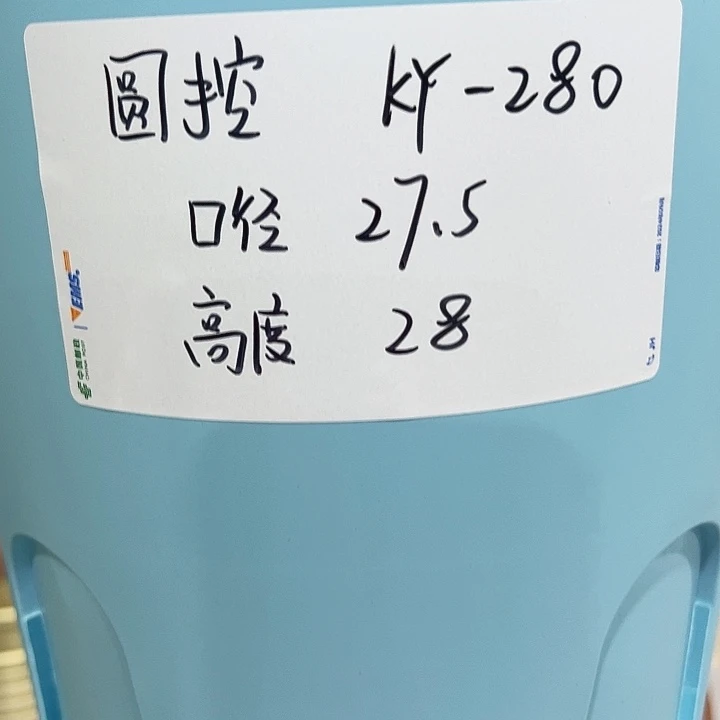 圆控 KY-280
口径 27.5
高度 28
EMS
中国邮政
CHINA POST